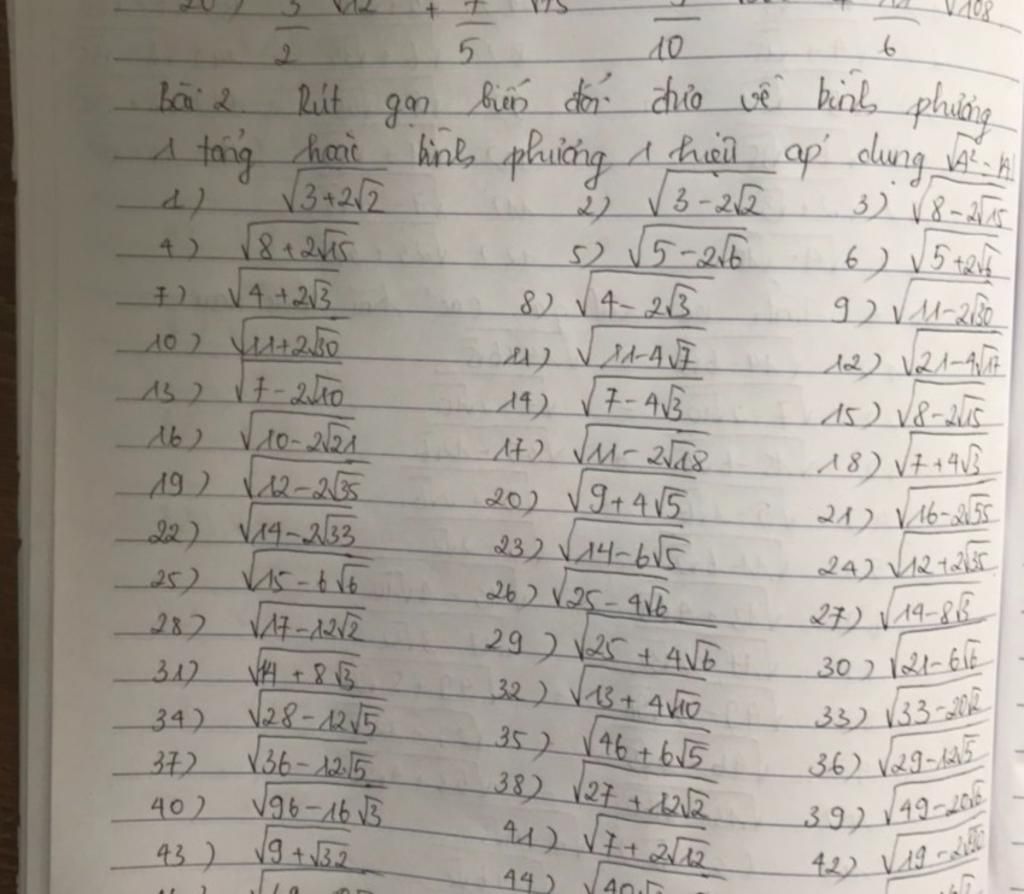 20) 3/2 √12 + 7/5 √75 /10 + /6 √108
Bài 2 Rút gọn biến đổi đưa về bình phương
1 tổng hoặc bình phương 1 hiệu áp dụng √A² = |A|
1) √(3+2√2) 2) √(3-2√2) 3) √(8-2√15)
4) √(8+2√15) 5) √(5-2√6) 6) √(5+2√6)
7) √(4+2√3) 8) √(4-2√3) 9) √(11-2√30)
10) √(11+2√30) 11) √(11-4√7) 12) √(21-4√17)
13) √(7-2√10) 14) √(7-4√3) 15) √(8-2√15)
16) √(10-2√21) 17) √(11-2√18) 18) √(7+4√3)
19) √(12-2√35) 20) √(9+4√5) 21) √(16-2√55)
22) √(14-2√33) 23) √(14-6√5) 24) √(12+2√35)
25) √(15-6√6) 26) √(25-4√6) 27) √(14-8√3)
28) √(17-12√2) 29) √(25+4√6) 30) √(21-6√6)
31) √(14+8√3) 32) √(13+4√10) 33) √(33-20√2)
34) √(28-12√5) 35) √(46+6√5) 36) √(29-12√5)
37) √(36-12√5) 38) √(27+12√2) 39) √(49-20√6)
40) √(96-16√3) 41) √(7+2√12) 42) √(19-2√90)
43) √(9+√32)
44) √(40